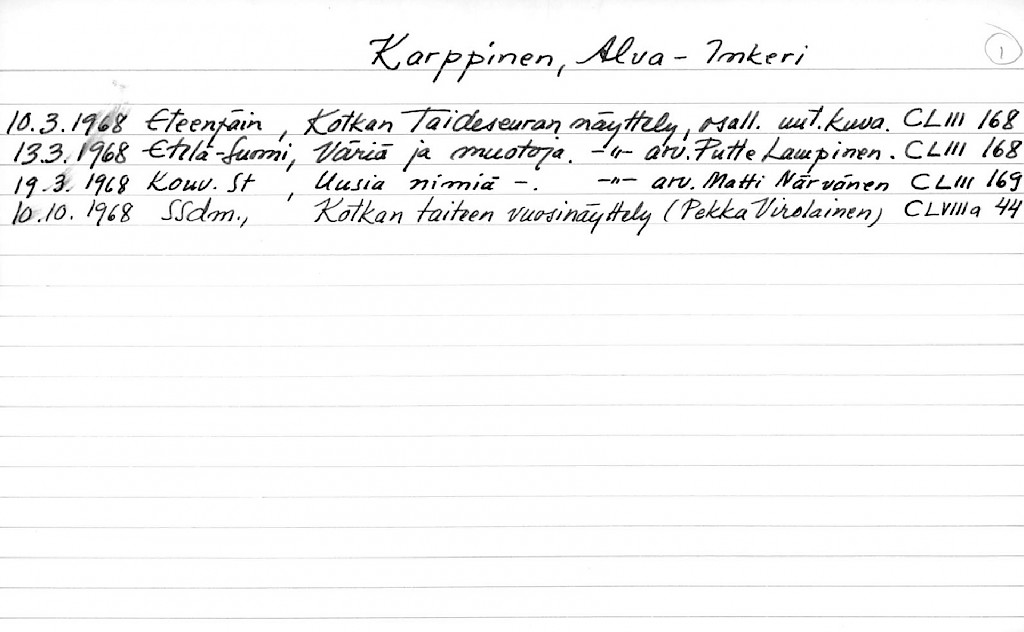 Karppinen, Alva-Imkeri 1
10.3.1968 Eteenpäin, Kotkan Taideseuran näyttely, osall. uut. kuva. CLIII 168
13.3.1968 Etelä-Suomi, Väriä ja muotoja. -"- arv. Putte Lampinen. CLIII 168
19.3.1968 Kouv. St, Uusia nimiä -. -"- arv. Matti Närvänen CLIII 169
10.10.1968 SSdm., Kotkan taiteen vuosinäyttely (Pekka Virolainen) CLVIIIa 44